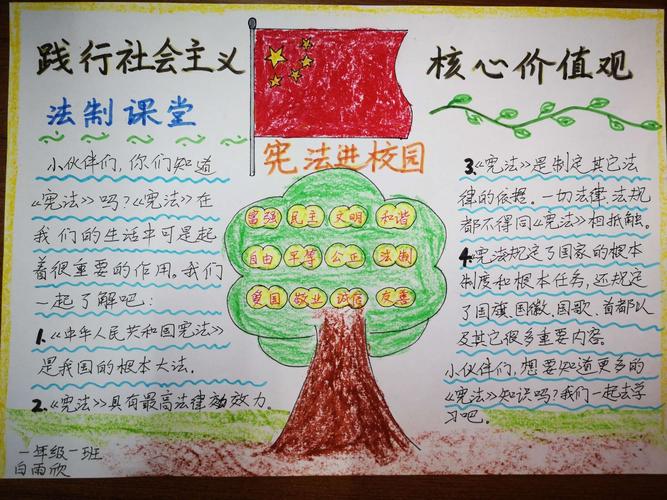 践行社会主义
核心价值观
法制课堂
宪法进校园
小伙伴们,你们知道
《宪法》吗?《宪法》在
我们的生活中可是起
着很重要的作用。我们
一起了解吧:
1.《中华人民共和国宪法》
是我国的根本大法.
2.《宪法》具有最高法律效力.
富强 民主 文明 和谐
自由 平等 公正 法制
爱国 敬业 诚信 友善
3.《宪法》是制定其它法
律的依据。一切法律、法规
都不得同《宪法》相抵触。
4.宪法规定了国家的根本
制度和根本任务,还规定
了国旗、国徽、国歌、首都以
及其它很多重要内容。
小伙伴们,想要知道更多的
《宪法》知识吗?我们一起去学
习吧。
一年级一班
白雨欣